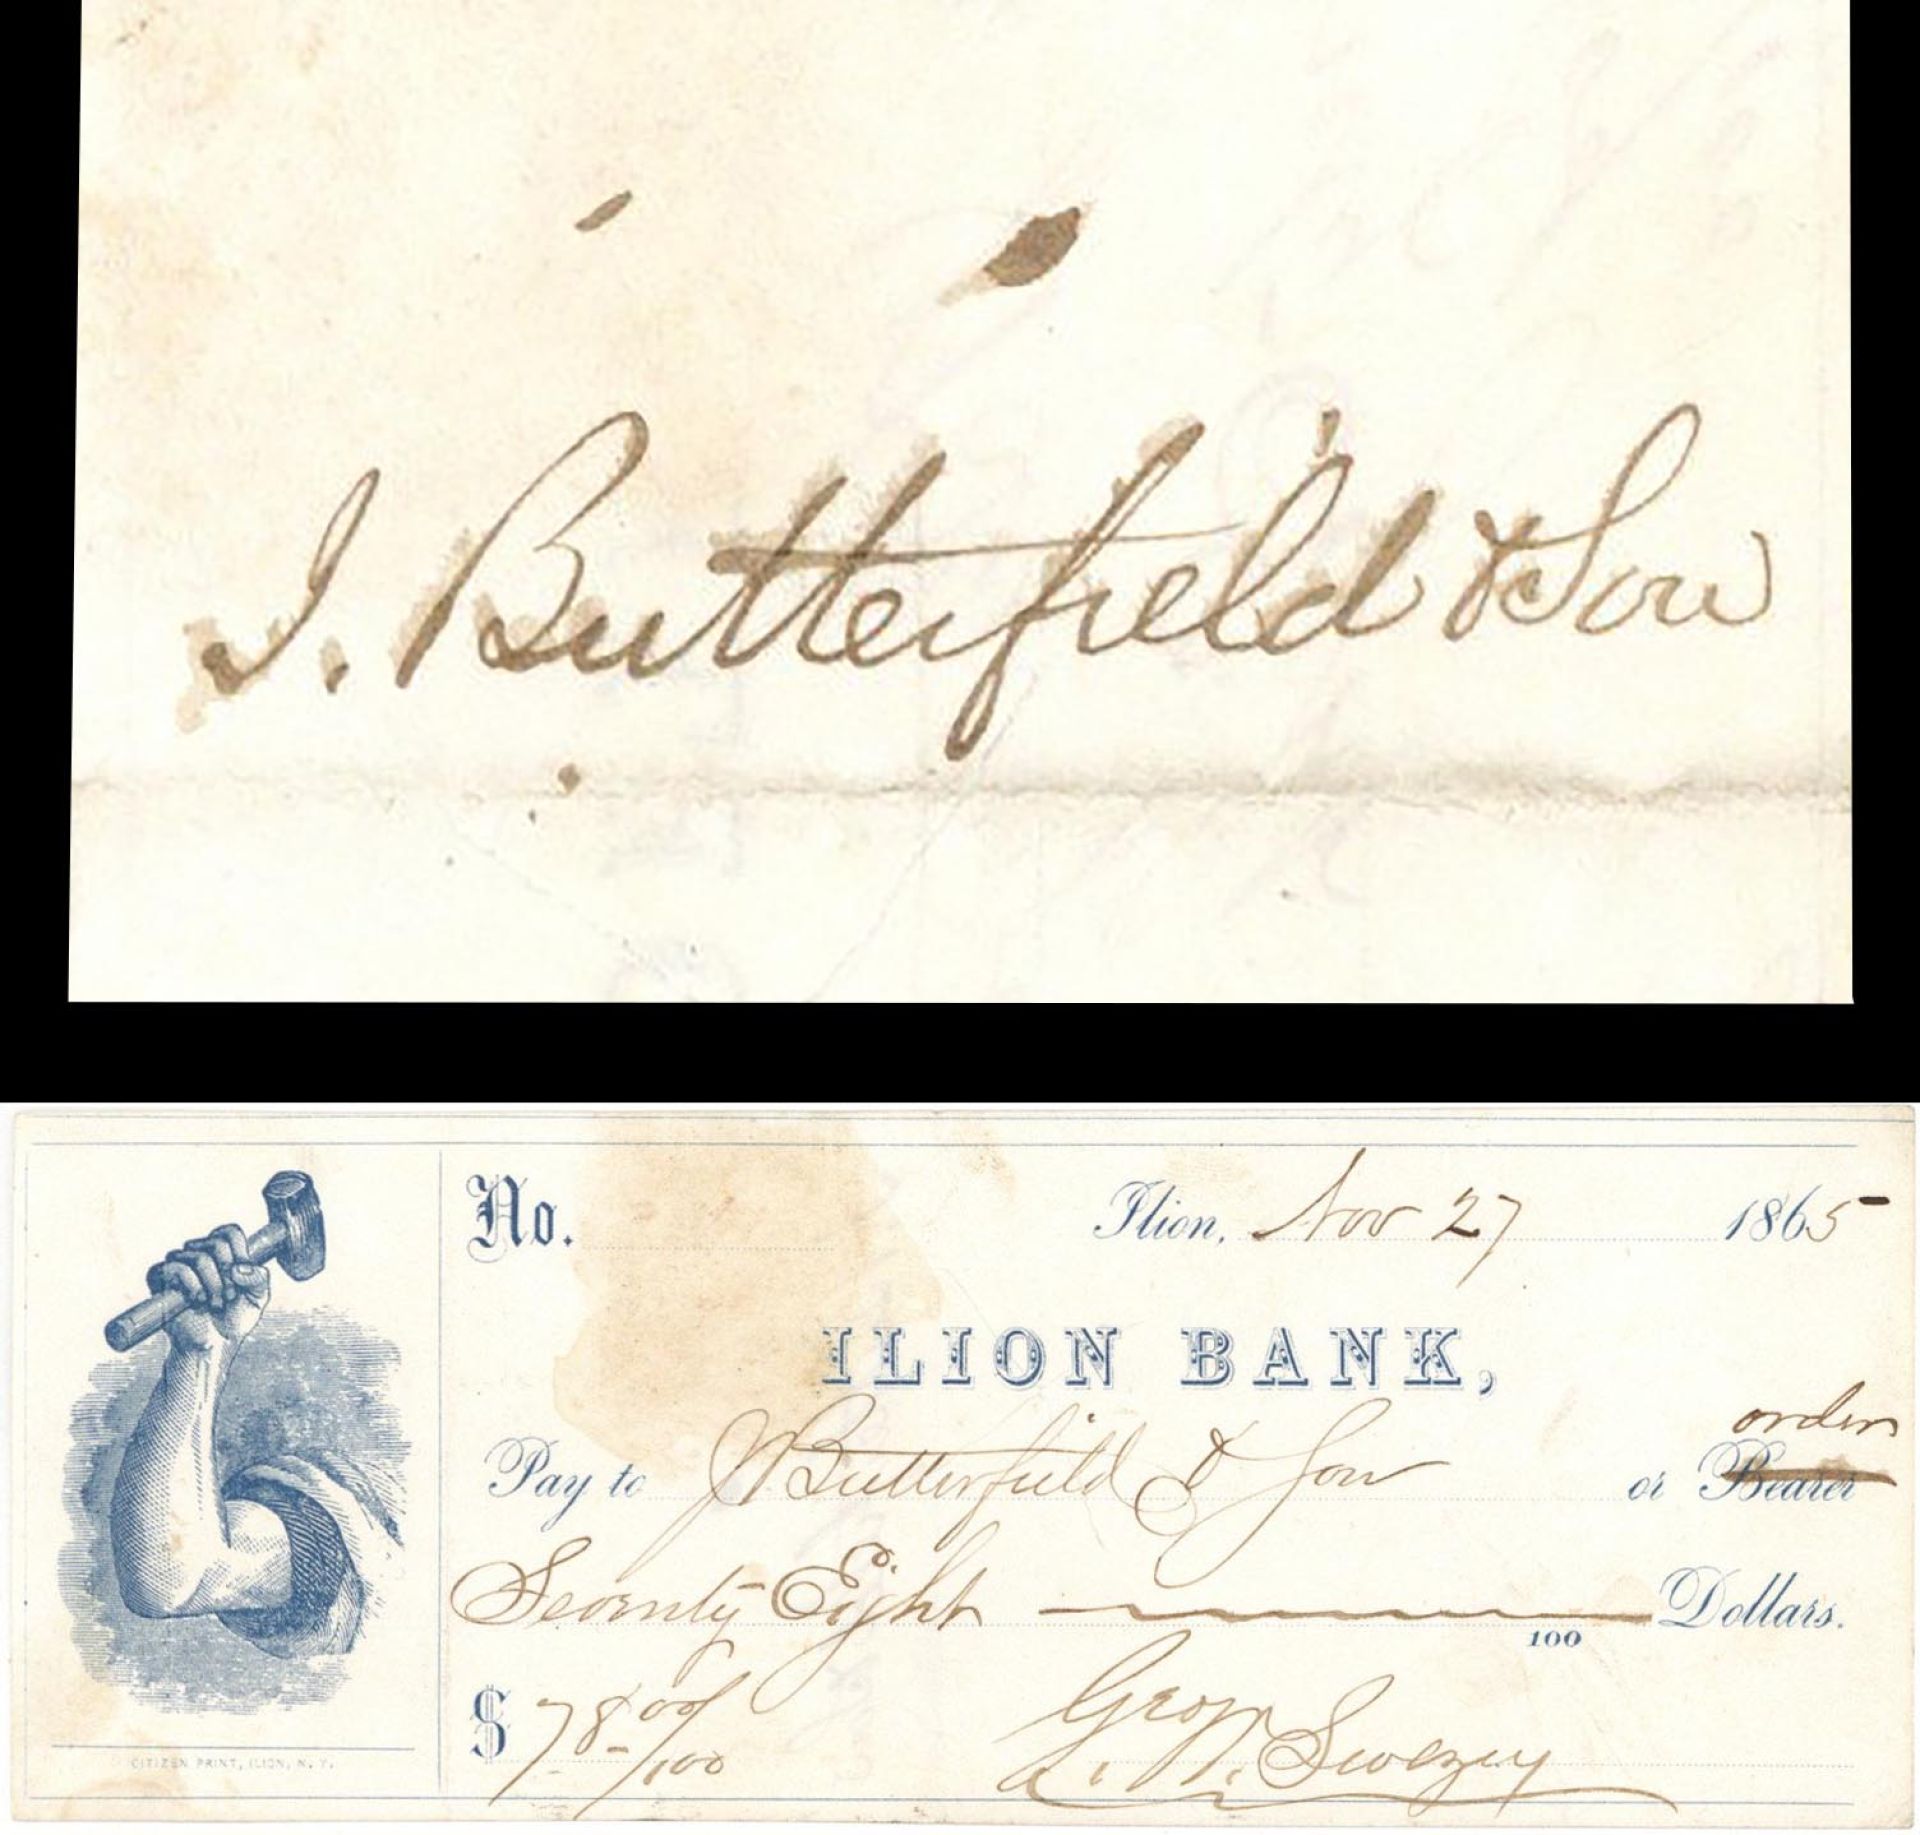 J. Butterfield & Son
No. Ilion, Nov 27 1865
ILION BANK,
order
Pay to J Butterfield & Son or Bearer
Seventy Eight Dollars.
100
$ 78 00/100 Geo
Swezey
CITIZEN PRINT, ILION, N. Y.